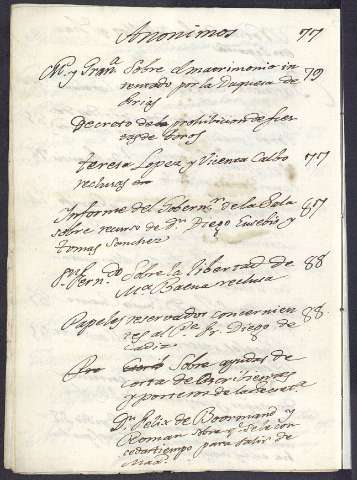 Anonimos 77
M. y Gran.ª Sobre el matrimonio in 79
tentado por la Duquesa de
Frias
Decreto de la prohibicion de fies
tas de toros
teresa Lopez y Vicenta Calbo 77
reclusas
Informe del Gobern.ʳ de la Sala 87
sobre recurso de D.ⁿ Diego Eusebio y
tomas Sanchez
S.ⁿ Fern.do Sobre la libertad de 88
M.ª Baena reclusa
Papeles reservados concernien 88
tes al P.e Fr. Diego de
Cadiz
Sobre ayudas de
costa de Escribientes
y portero de la
D.ⁿ Felix de Boormand y
Roman sobre q.e se le con
ceda tiempo para salir de
Mad.